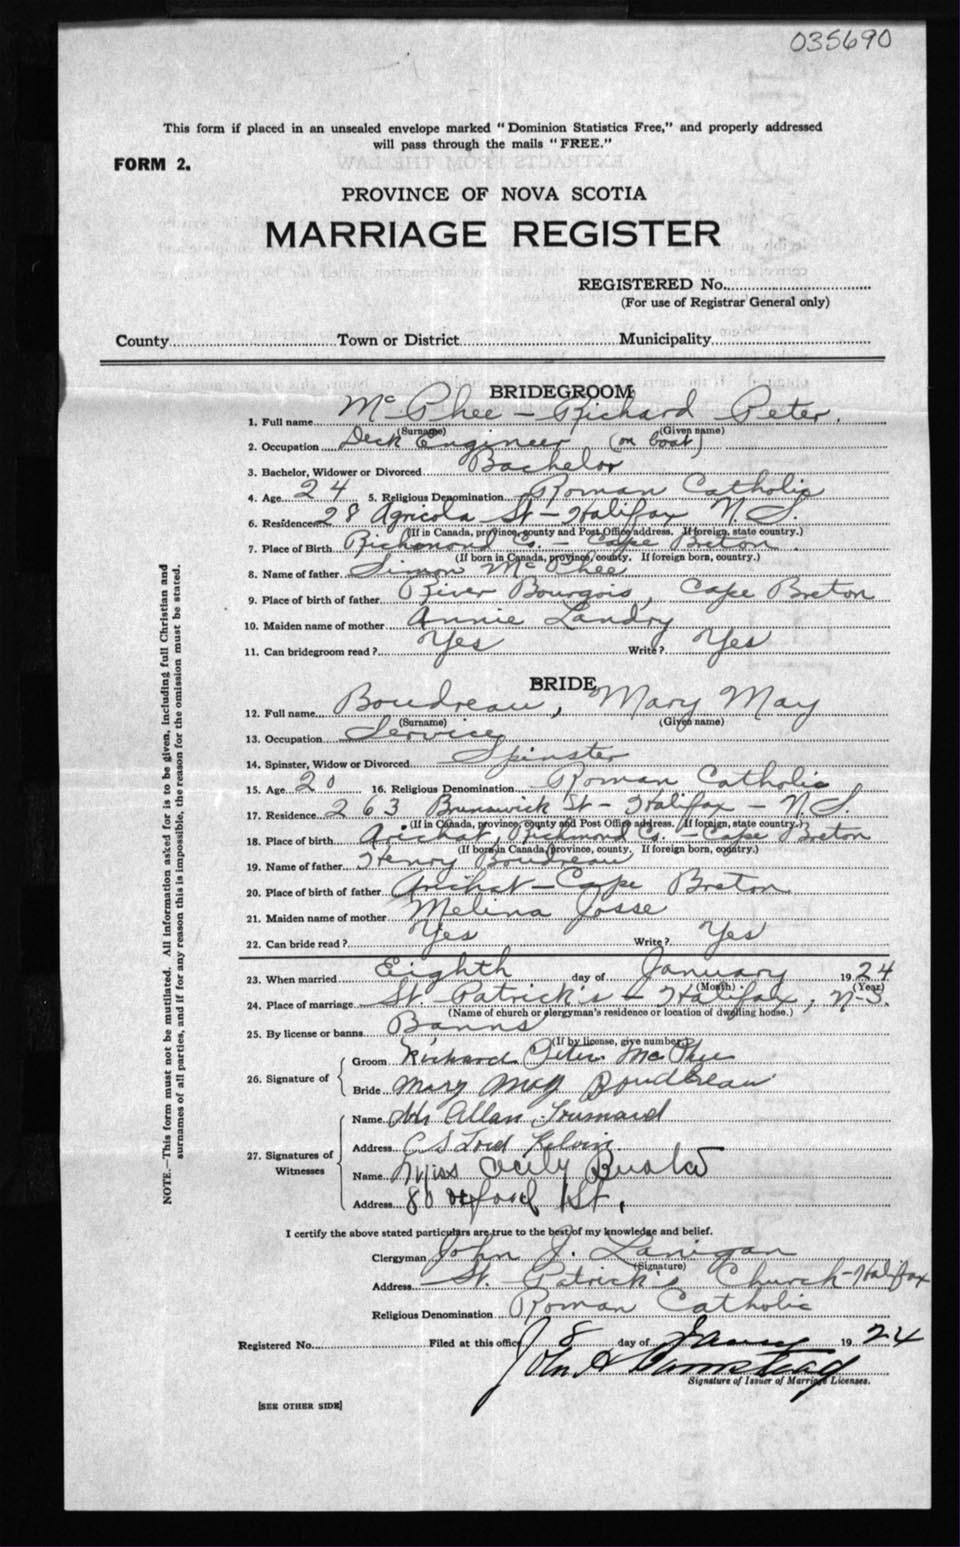 035690
This form if placed in an unsealed envelope marked "Dominion Statistics Free," and properly addressed
will pass through the mails "FREE."
FORM 2.
PROVINCE OF NOVA SCOTIA
MARRIAGE REGISTER
REGISTERED No.
(For use of Registrar General only)
County Town or District Municipality
BRIDEGROOM
1. Full name Mc Phee - Richard Peter.
(Surname) (Given name)
2. Occupation Deck Engineer (on boat)
3. Bachelor, Widower or Divorced Bachelor
4. Age 24 5. Religious Denomination Roman Catholic
6. Residence 28 Agricola St - Halifax N.S.
(If in Canada, province, county and Post Office address. If foreign, state country.)
7. Place of Birth Richmond Co. - Cape Breton.
(If born in Canada, province, county. If foreign born, country.)
8. Name of father Simon McPhee
9. Place of birth of father River Bourgois, Cape Breton
10. Maiden name of mother Annie Landry
11. Can bridegroom read ? Yes Write ? Yes
BRIDE
12. Full name Boudreau, Mary May
(Surname) (Given name)
13. Occupation Service
14. Spinster, Widow or Divorced Spinster
15. Age 20 16. Religious Denomination Roman Catholic
17. Residence 263 Brunswick St - Halifax - N.S.
(If in Canada, province, county and Post Office address. If foreign, state country.)
18. Place of birth Arichat, Richmond Co. - Cape Breton
(If born in Canada, province, county. If foreign born, country.)
19. Name of father Henry Boudreau
20. Place of birth of father Arichat - Cape Breton
21. Maiden name of mother Melina Josse
22. Can bride read ? Yes Write ? Yes
23. When married Eighth day of January 1924
(Month) (Year)
24. Place of marriage St. Patrick's - Halifax, N-S.
(Name of church or clergyman's residence or location of dwelling house.)
25. By license or banns Banns
(If by license, give number)
26. Signature of
Groom Richard Peter McPhee
Bride Mary May Boudreau
27. Signatures of Witnesses
Name Allan
Address C S Lord Kelvin
Name Miss Cecily
Address 80 St.
I certify the above stated particulars are true to the best of my knowledge and belief.
Clergyman John J. Lanigan
(Signature)
Address St. Patrick's Church - Halifax
Religious Denomination Roman Catholic
Registered No. Filed at this office 8 day of January 1924
John H Barnstead
Signature of Issuer of Marriage Licenses.
[SEE OTHER SIDE]
NOTE.—This form must not be mutilated. All information asked for is to be given, including full Christian and
surnames of all parties, and if for any reason this is impossible, the reason for the omission must be stated.